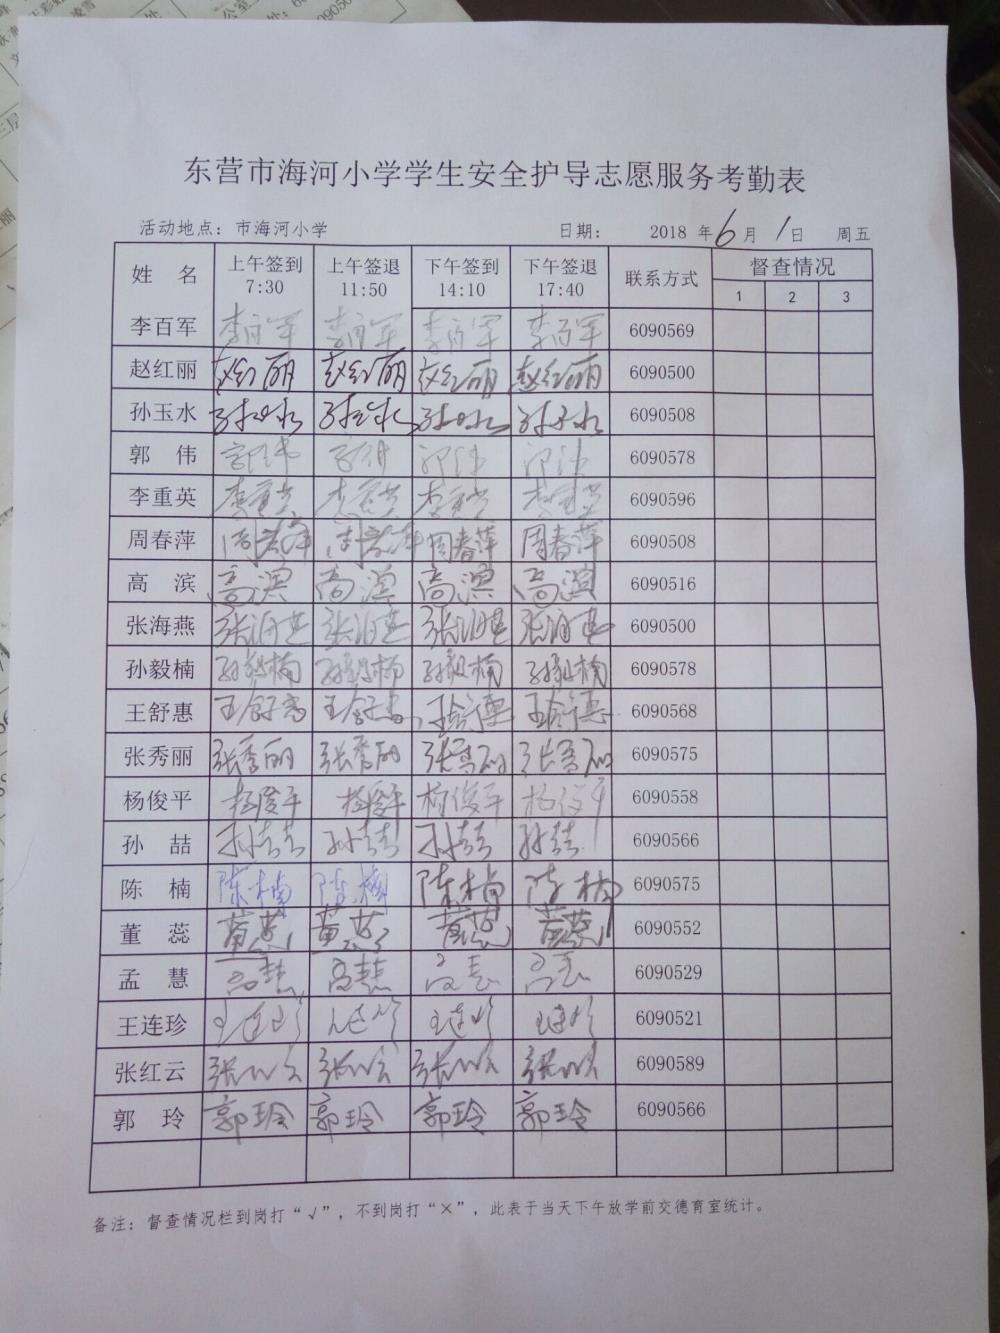 东营市海河小学学生安全护导志愿服务考勤表
活动地点：市海河小学 日期： 2018 年 6 月 1 日 周五
姓 名 上午签到 7:30 上午签退 11:50 下午签到 14:10 下午签退 17:40 联系方式 督查情况
1 2 3
李百军 李百军 李百军 李百军 李百军 6090569
赵红丽 赵红丽 赵红丽 赵红丽 赵红丽 6090500
孙玉水 孙玉水 孙玉水 孙玉水 孙玉水 6090508
郭 伟 郭伟 郭伟 郭伟 郭伟 6090578
李重英 李重英 李重英 李重英 李重英 6090596
周春萍 周春萍 周春萍 周春萍 周春萍 6090508
高 滨 高滨 高滨 高滨 高滨 6090516
张海燕 张海燕 张海燕 张海燕 张海燕 6090500
孙毅楠 孙毅楠 孙毅楠 孙毅楠 孙毅楠 6090578
王舒惠 王舒惠 王舒惠 王舒惠 王舒惠 6090568
张秀丽 张秀丽 张秀丽 张秀丽 张秀丽 6090575
杨俊平 杨俊平 杨俊平 杨俊平 杨俊平 6090558
孙 喆 孙喆 孙喆 孙喆 孙喆 6090566
陈 楠 陈楠 陈楠 陈楠 陈楠 6090575
董 蕊 董蕊 董蕊 董蕊 董蕊 6090552
孟 慧 孟慧 孟慧 孟慧 孟慧 6090529
王连珍 王连珍 王连珍 王连珍 王连珍 6090521
张红云 张红云 张红云 张红云 张红云 6090589
郭 玲 郭玲 郭玲 郭玲 郭玲 6090566
备注：督查情况栏到岗打“√”，不到岗打“×”，此表于当天下午放学前交德育室统计。